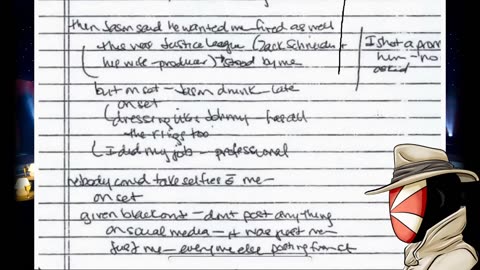 then Jason said he wanted me fired as well
this was Justice League (Zack Schneider +
his wife - producer) stood by me
I shot a prom
him - no
but on set - Jason drunk - late
on set
dressing like Johnny - has all
the rings too
I did my job - professional
nobody could take selfies c̄ me -
on set
given blackout - don't post anything
on social media - it was just me -
just me - everyone else posting from it